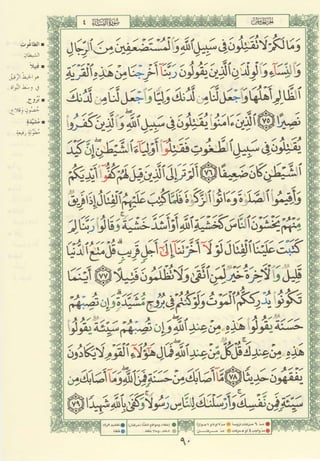 الجزء الخامس
سُورَةُ النِّسَاءِ ٤
وَمَا لَكُمْ لَا تُقَٰتِلُونَ فِي سَبِيلِ ٱللَّهِ وَٱلْمُسْتَضْعَفِينَ مِنَ ٱلرِّجَالِ
وَٱلنِّسَآءِ وَٱلْوِلْدَٰنِ ٱلَّذِينَ يَقُولُونَ رَبَّنَآ أَخْرِجْنَا مِنْ هَٰذِهِ ٱلْقَرْيَةِ
ٱلظَّالِمِ أَهْلُهَا وَٱجْعَل لَّنَا مِن لَّدُنكَ وَلِيًّا وَٱجْعَل لَّنَا مِن لَّدُنكَ
نَصِيرًا ٧٥ ٱلَّذِينَ ءَامَنُوا۟ يُقَٰتِلُونَ فِي سَبِيلِ ٱللَّهِ وَٱلَّذِينَ كَفَرُوا۟
يُقَٰتِلُونَ فِي سَبِيلِ ٱلطَّٰغُوتِ فَقَٰتِلُوٓا۟ أَوْلِيَآءَ ٱلشَّيْطَٰنِ إِنَّ كَيْدَ
ٱلشَّيْطَٰنِ كَانَ ضَعِيفًا ٧٦ أَلَمْ تَرَ إِلَى ٱلَّذِينَ قِيلَ لَهُمْ كُفُّوٓا۟ أَيْدِيَكُمْ
وَأَقِيمُوا۟ ٱلصَّلَوٰةَ وَءَاتُوا۟ ٱلزَّكَوٰةَ فَلَمَّا كُتِبَ عَلَيْهِمُ ٱلْقِتَالُ إِذَا فَرِيقٌ
مِّنْهُمْ يَخْشَوْنَ ٱلنَّاسَ كَخَشْيَةِ ٱللَّهِ أَوْ أَشَدَّ خَشْيَةً وَقَالُوا۟ رَبَّنَا لِمَ
كَتَبْتَ عَلَيْنَا ٱلْقِتَالَ لَوْلَآ أَخَّرْتَنَآ إِلَىٰٓ أَجَلٍ قَرِيبٍ قُلْ مَتَٰعُ ٱلدُّنْيَا
قَلِيلٌ وَٱلْءَاخِرَةُ خَيْرٌ لِّمَنِ ٱتَّقَىٰ وَلَا تُظْلَمُونَ فَتِيلًا ٧٧ أَيْنَمَا
تَكُونُوا۟ يُدْرِككُّمُ ٱلْمَوْتُ وَلَوْ كُنتُمْ فِي بُرُوجٍ مُّشَيَّدَةٍ وَإِن تُصِبْهُمْ
حَسَنَةٌ يَقُولُوا۟ هَٰذِهِ مِنْ عِندِ ٱللَّهِ وَإِن تُصِبْهُمْ سَيِّئَةٌ يَقُولُوا۟
هَٰذِهِ مِنْ عِندِكَ قُلْ كُلٌّ مِّنْ عِندِ ٱللَّهِ فَمَالِ هَٰٓؤُلَآءِ ٱلْقَوْمِ لَا يَكَادُونَ
يَفْقَهُونَ حَدِيثًا ٧٨ مَّآ أَصَابَكَ مِنْ حَسَنَةٍ فَمِنَ ٱللَّهِ وَمَآ أَصَابَكَ مِن
سَيِّئَةٍ فَمِن نَّفْسِكَ وَأَرْسَلْنَٰكَ لِلنَّاسِ رَسُولًا وَكَفَىٰ بِٱللَّهِ شَهِيدًا ٧٩
الطاغوت
الشيطان
فتيلا
هو الخيط الرقيق
في وسط النواة
بروج
حصون وقلاع
مشيدة
مطولة رفيعة
٩٠